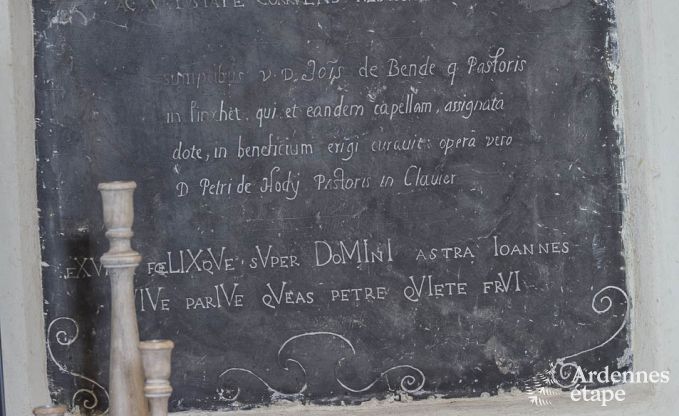 sumptibus v. D. Joīs de Bende q. Pastoris
in finxhet. qui et eandem capellam, assignata
dote, in beneficium erigi curavit: opera vero
D Petri de Hody Pastoris in Clavier
FŒLIXQVE SVPER DOMINI ASTRA IOANNES
PARIVE QVEAS PETRE QVIETE FRVI
Ardennes
étape